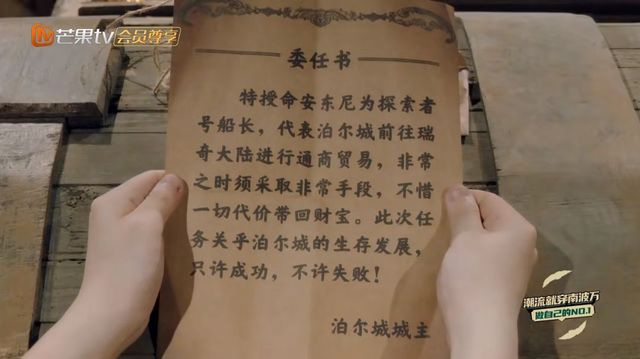 芒果tv 会员尊享
委任书
特授命安东尼为探索者
号船长，代表泊尔城前往瑞
奇大陆进行通商贸易，非常
之时须采取非常手段，不惜
一切代价带回财宝。此次任
务关乎泊尔城的生存发展，
只许成功，不许失败！
泊尔城城主
潮流就穿南波万
做自己的NO.1